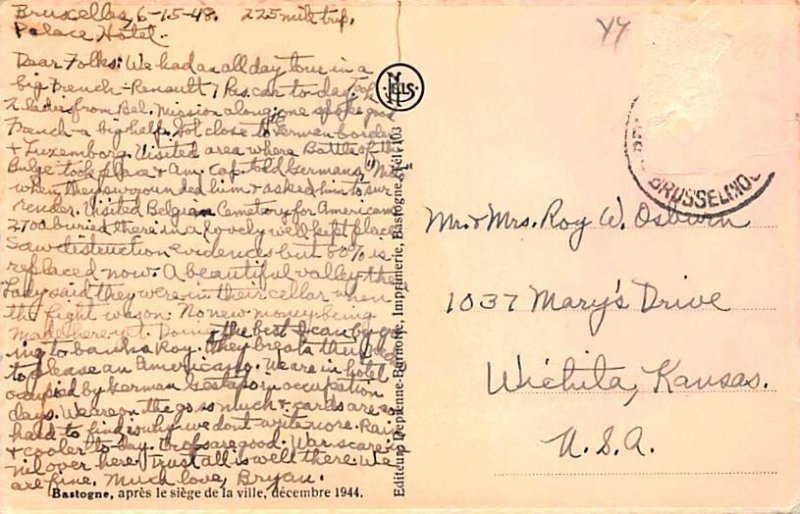 Bruxelles, 6-15-48. 225 mile trip.
Palace Hotel.
Dear Folks: We had an all day tour in a
big French-Renault 7 Pas. car to day. Took
2 ladies from Bel. Mission along, one spoke good
French - a big help. Got close to German border
+ Luxemborg. Visited area where Battle of the
Bulge took place + Am. Cap. told Germans, "Nuts"
when they surrounded him + asked him to sur
render. Visited Belgian Cemetery for Americans
2700 buried there in a lovely well kept place
Saw distruction evidences but 80% is
replaced now. A beautiful valley the
Lady said they were in their cellar when
the fight was on. No new money being
made here yet. Doing the best I can by go
ing to banks Roy. They break their backs
to please an American. We are in hotel
occupied by German Gestapo in occupation
days. We are on the go so much + cards are so
hard to find is why we dont write more. Rain
+ cooler to day. Crops are good. War scare is
nil over here. Trust all is well there. We
are fine. Much love, Bryan.
Bastogne, après le siège de la ville, décembre 1944.
NELS
Editeur: Depienne-Burnotte, Imprimerie, Bastogne, Tél. 103
YY
BRUSSEL
Mr. + Mrs. Roy W. Osburn
1037 Mary's Drive
Wichita, Kansas.
U.S.A.